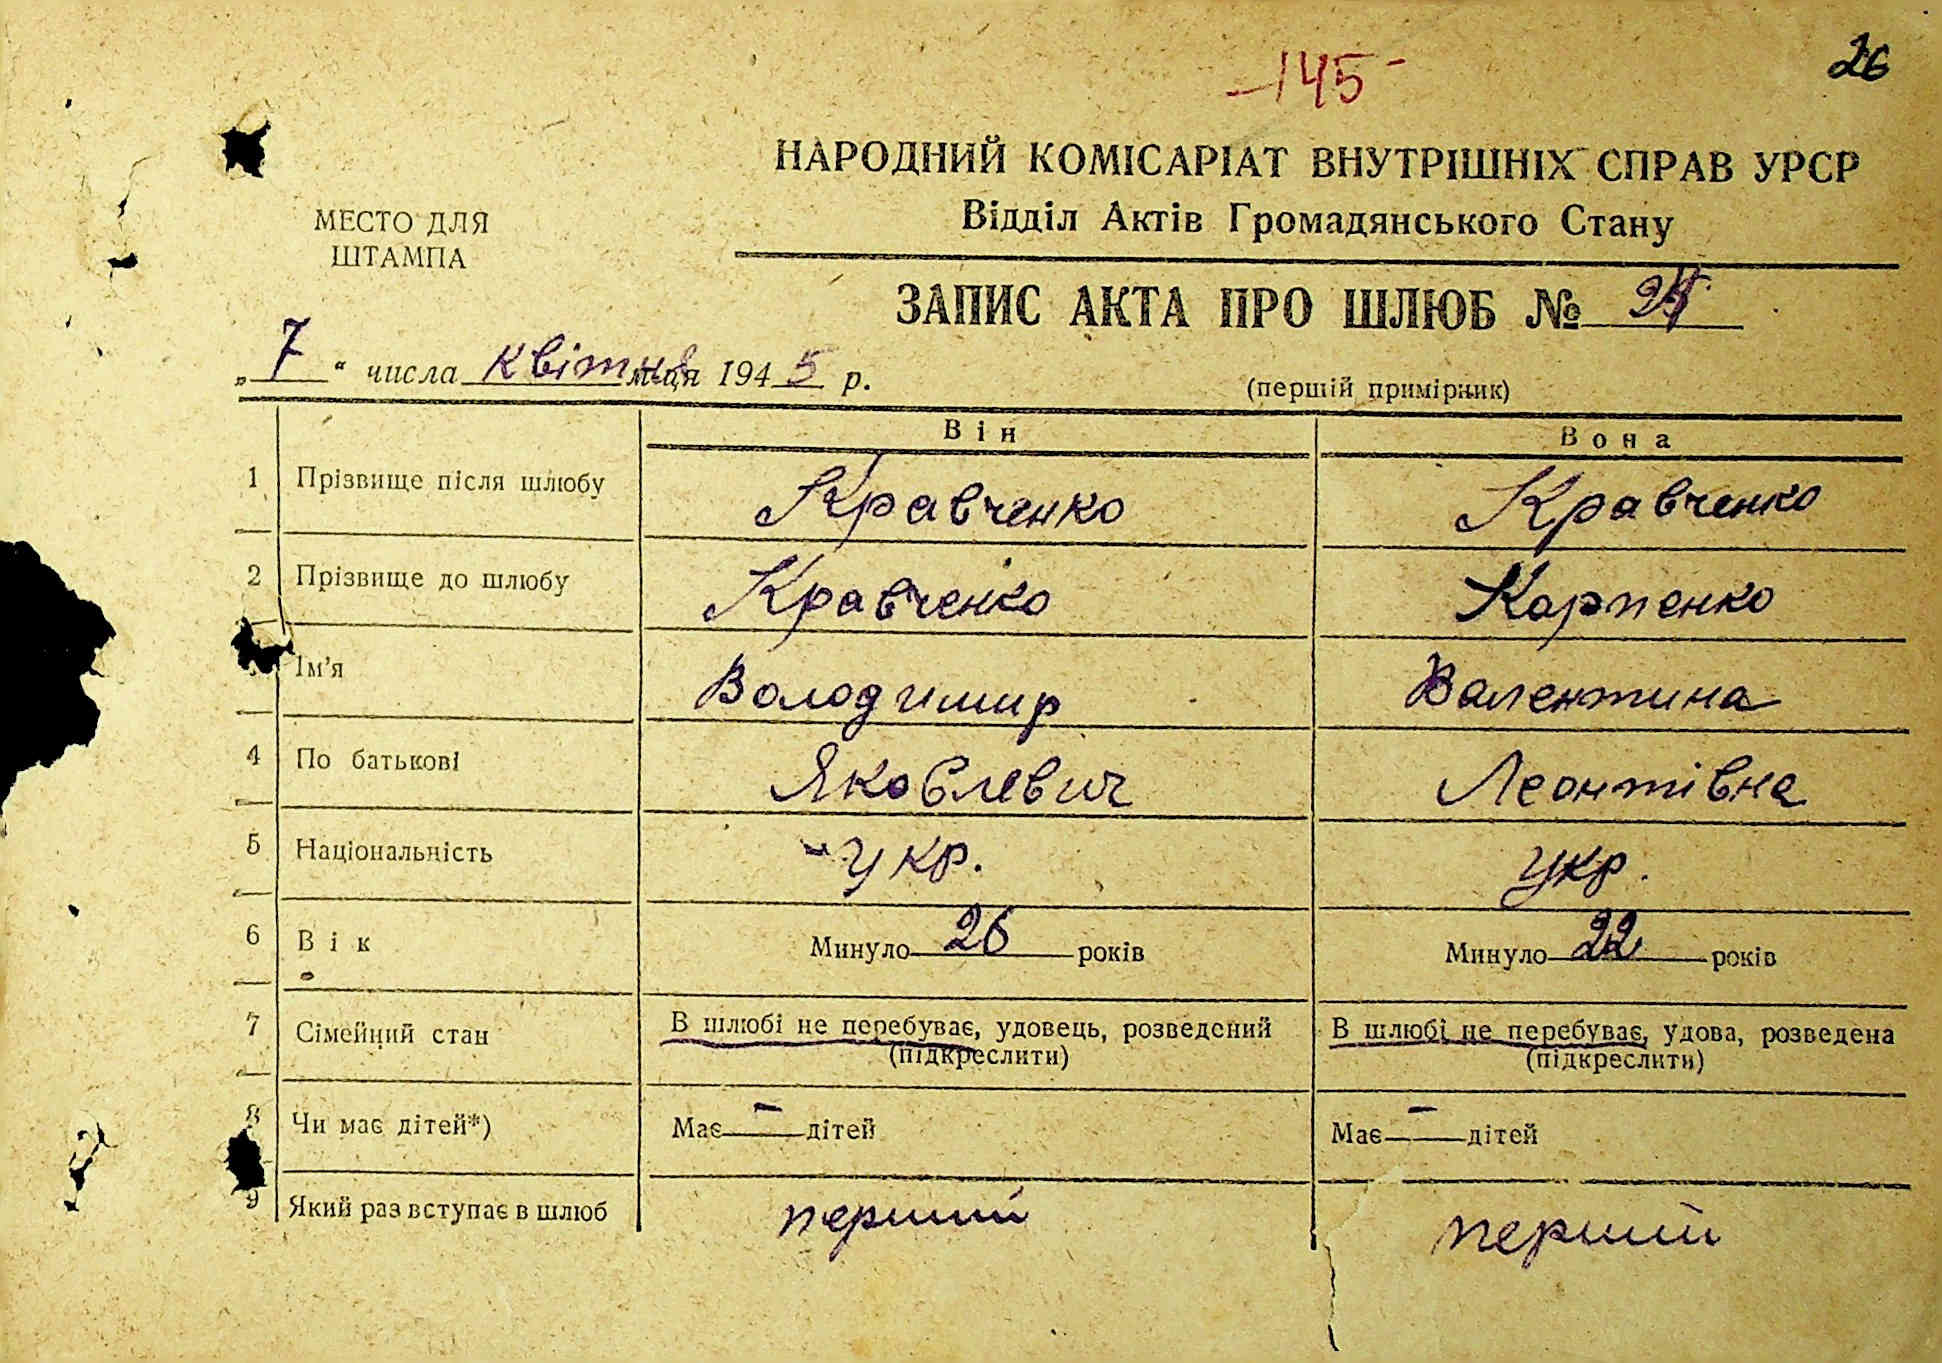 -145-
26
НАРОДНИЙ КОМІСАРІАТ ВНУТРІШНІХ СПРАВ УРСР
Відділ Актів Громадянського Стану
МЕСТО ДЛЯ
ШТАМПА
ЗАПИС АКТА ПРО ШЛЮБ №
„7“ числа квітня м-ця 1945 р.
(перший примірник)
Він Вона
1 Прізвище після шлюбу Кравченко Кравченко
2 Прізвище до шлюбу Кравченко Карпенко
Ім'я Володимир Валентина
4 По батькові Яковлевич Леонтівна
5 Національність укр. укр.
6 Вік Минуло 26 років Минуло 22 років
7 Сімейний стан В шлюбі не перебуває, удовець, розведений В шлюбі не перебуває, удова, розведена
(підкреслити) (підкреслити)
8 Чи має дітей*) Має — дітей Має — дітей
9 Який раз вступає в шлюб перший перший